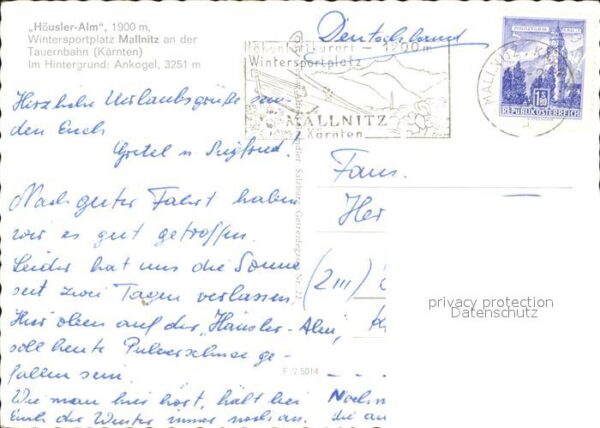 „Häusler-Alm", 1900 m,
Wintersportplatz Mallnitz an der
Tauernbahn (Kärnten)
Im Hintergrund: Ankogel, 3251 m
Deutschland
Höhenluftkurort - 1200 m
Wintersportplatz
MALLNITZ
Kärnten
MALLNITZ · K
1.50
REPUBLIK ÖSTERREICH
Herzliche Urlaubsgrüße
den Euch
Gretel u Siegfried!
Nach guter Fahrt haben
wir es gut getroffen.
Leider hat uns die Sonne
seit zwei Tagen verlassen.
Hier oben auf der „Häusler-Alm",
soll heute Pulverschnee ge-
fallen sein.
Wie man hier hört, hält bei
Euch der Winter immer noch an.
Salzburg, Getreidegasse Nr. 22
Fam.
Her
(2111)
privacy protection
Datenschutz
F 2 5014
Nochm
die an